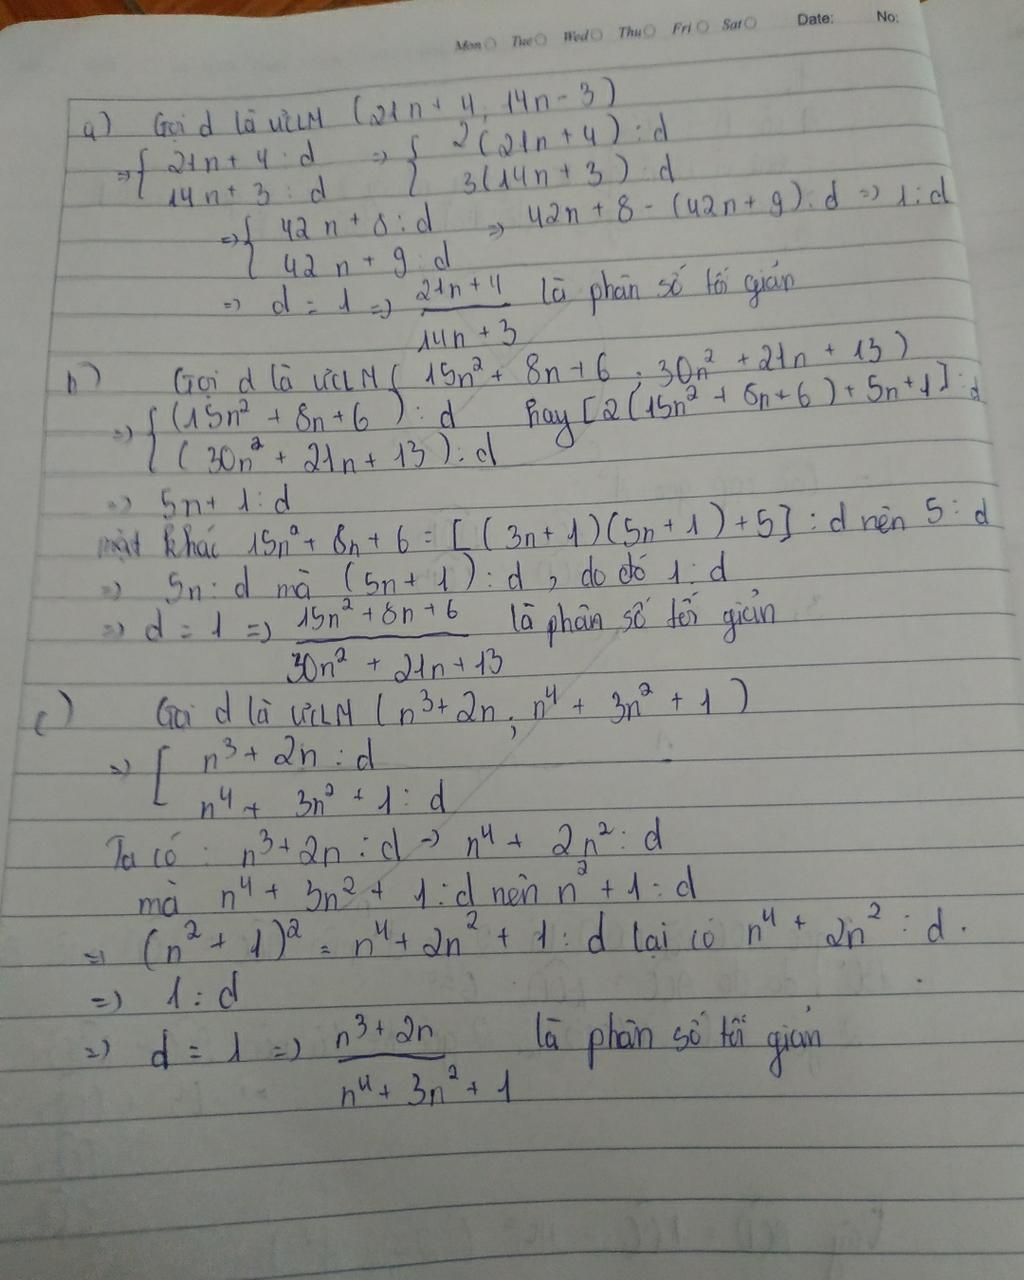 Mon Tue Wed Thu Fri Sat Date: No:
a) Gọi d là ƯCLN (21n + 4, 14n - 3)
=> { 21n + 4 : d => { 2(21n + 4) : d
14n + 3 : d 3(14n + 3) : d
=> { 42n + 8 : d => 42n + 8 - (42n + 9) : d => 1 : d
42n + 9 : d
=> d = 1 => \frac{21n + 4}{14n + 3} là phân số tối giản
b) Gọi d là ƯCLN ( 15n² + 8n + 6 ; 30n² + 21n + 13)
=> { (15n² + 8n + 6) : d hay [2(15n² + 8n + 6) + 5n + 1] : d
(30n² + 21n + 13) : d
=> 5n + 1 : d
mặt khác 15n² + 8n + 6 = [(3n + 1)(5n + 1) + 5] : d nên 5 : d
=> 5n : d mà (5n + 1) : d , do đó 1 : d
=> d = 1 => \frac{15n² + 8n + 6}{30n² + 21n + 13} là phân số tối giản
c) Gọi d là ƯCLN (n³ + 2n ; n⁴ + 3n² + 1)
=> [ n³ + 2n : d
n⁴ + 3n² + 1 : d
Ta có : n³ + 2n : d -> n⁴ + 2n² : d
mà n⁴ + 3n² + 1 : d nên n² + 1 : d
=> (n² + 1)² = n⁴ + 2n² + 1 : d lại có n⁴ + 2n² : d .
=> 1 : d
=> d = 1 => \frac{n³ + 2n}{n⁴ + 3n² + 1} là phân số tối giản